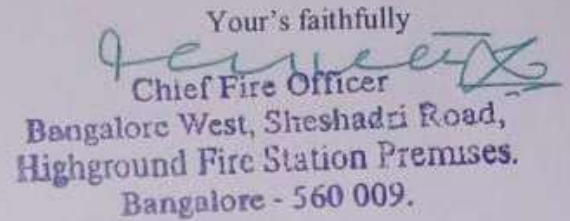 Your's faithfully
Chief Fire Officer
Bangalore West, Sheshadri Road,
Highground Fire Station Premises.
Bangalore - 560 009.